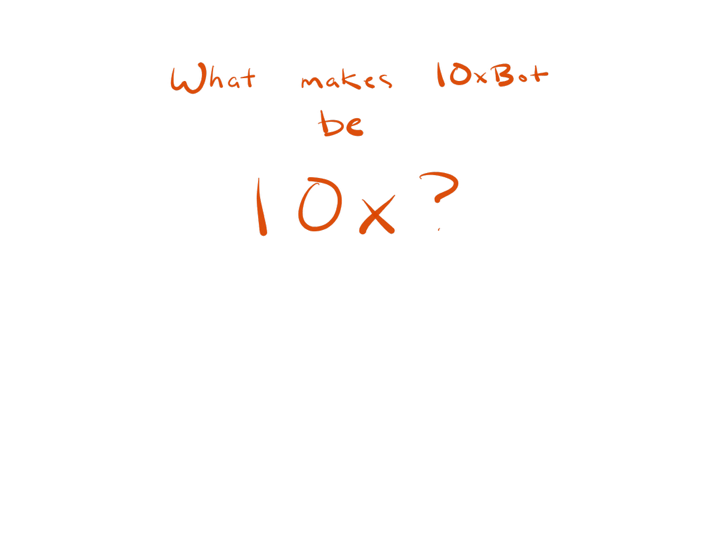 What makes 10xBot
be
10x?